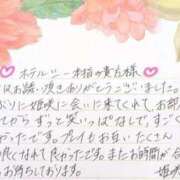 ホテル 一本指の貴方様
お誘い頂きありがとうございました。
ぶりに姫咲に会いに来てくれて、お部
てからずっと笑いっぱなしで、すご
ったです。プレイもお互いたくさん
良くなれて良かったです。またお時間が合
お待ちしております。
姫咲